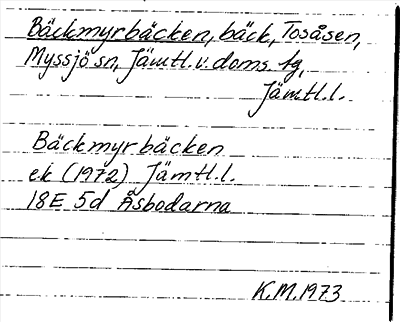 Bäckmyrbäcken, bäck, Tosåsen,
Myssjö sn, Jämtl. v. doms. tg,
Jämtl. l.
Bäckmyrbäcken
ek (1972) Jämtl. l.
18E 5d Åsbodarna
K.M. 1973